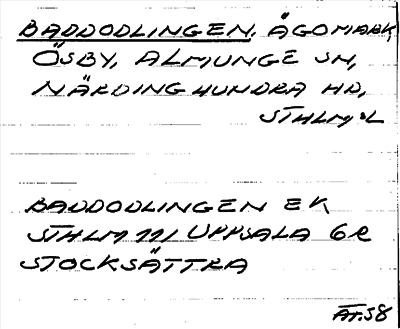 BADDODLINGEN, ÄGOMARK,
ÖSBY, ALMUNGE SN,
NÄRDINGHUNDRA HD,
STHLM:L
BADDODLINGEN EK
STHLM 111 UPPSALA 6e
STOCKSÄTTRA
ÄT.58